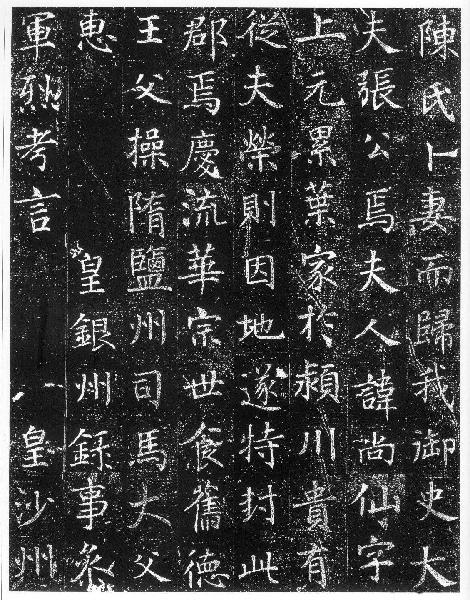 陳氏卜妻而歸我御史大
夫張公焉夫人諱尚仙字
上元累葉家於潁川貴有
從夫榮則因地遂特封此
郡焉慶流華宗世食舊德
王父操隋鹽州司馬大父
惠 皇銀州錄事參
軍烈考言 皇沙州